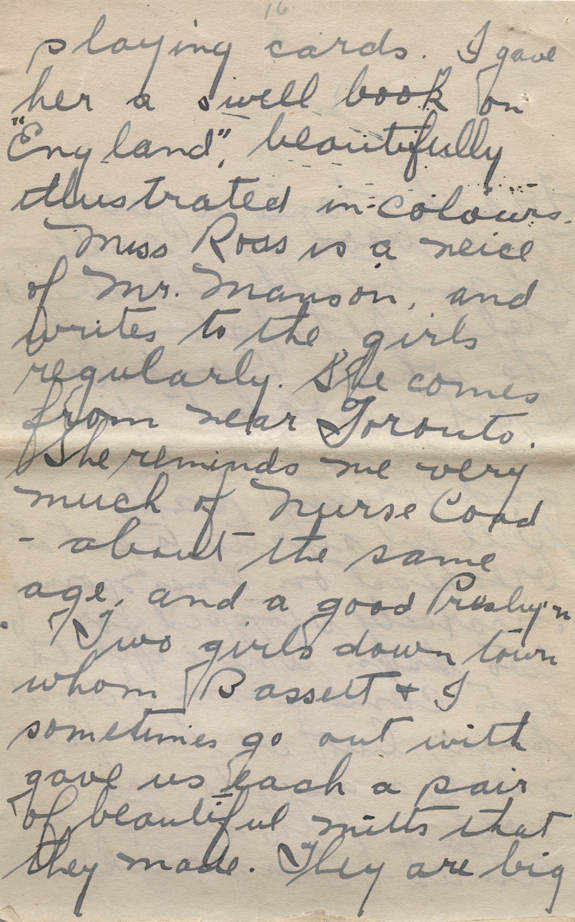 16
playing cards. I gave
her a swell book on
"England", beautifully
illustrated in colours.
Miss Ross is a neice
of Mr. Manson, and
writes to the girls
regularly. She comes
from near Toronto.
She reminds me very
much of Nurse Coad
- about the same
age, and a good Presby'n
Two girls down town
whom Bassett & I
sometimes go out with
gave us each a pair
of beautiful mitts that
they made. They are big